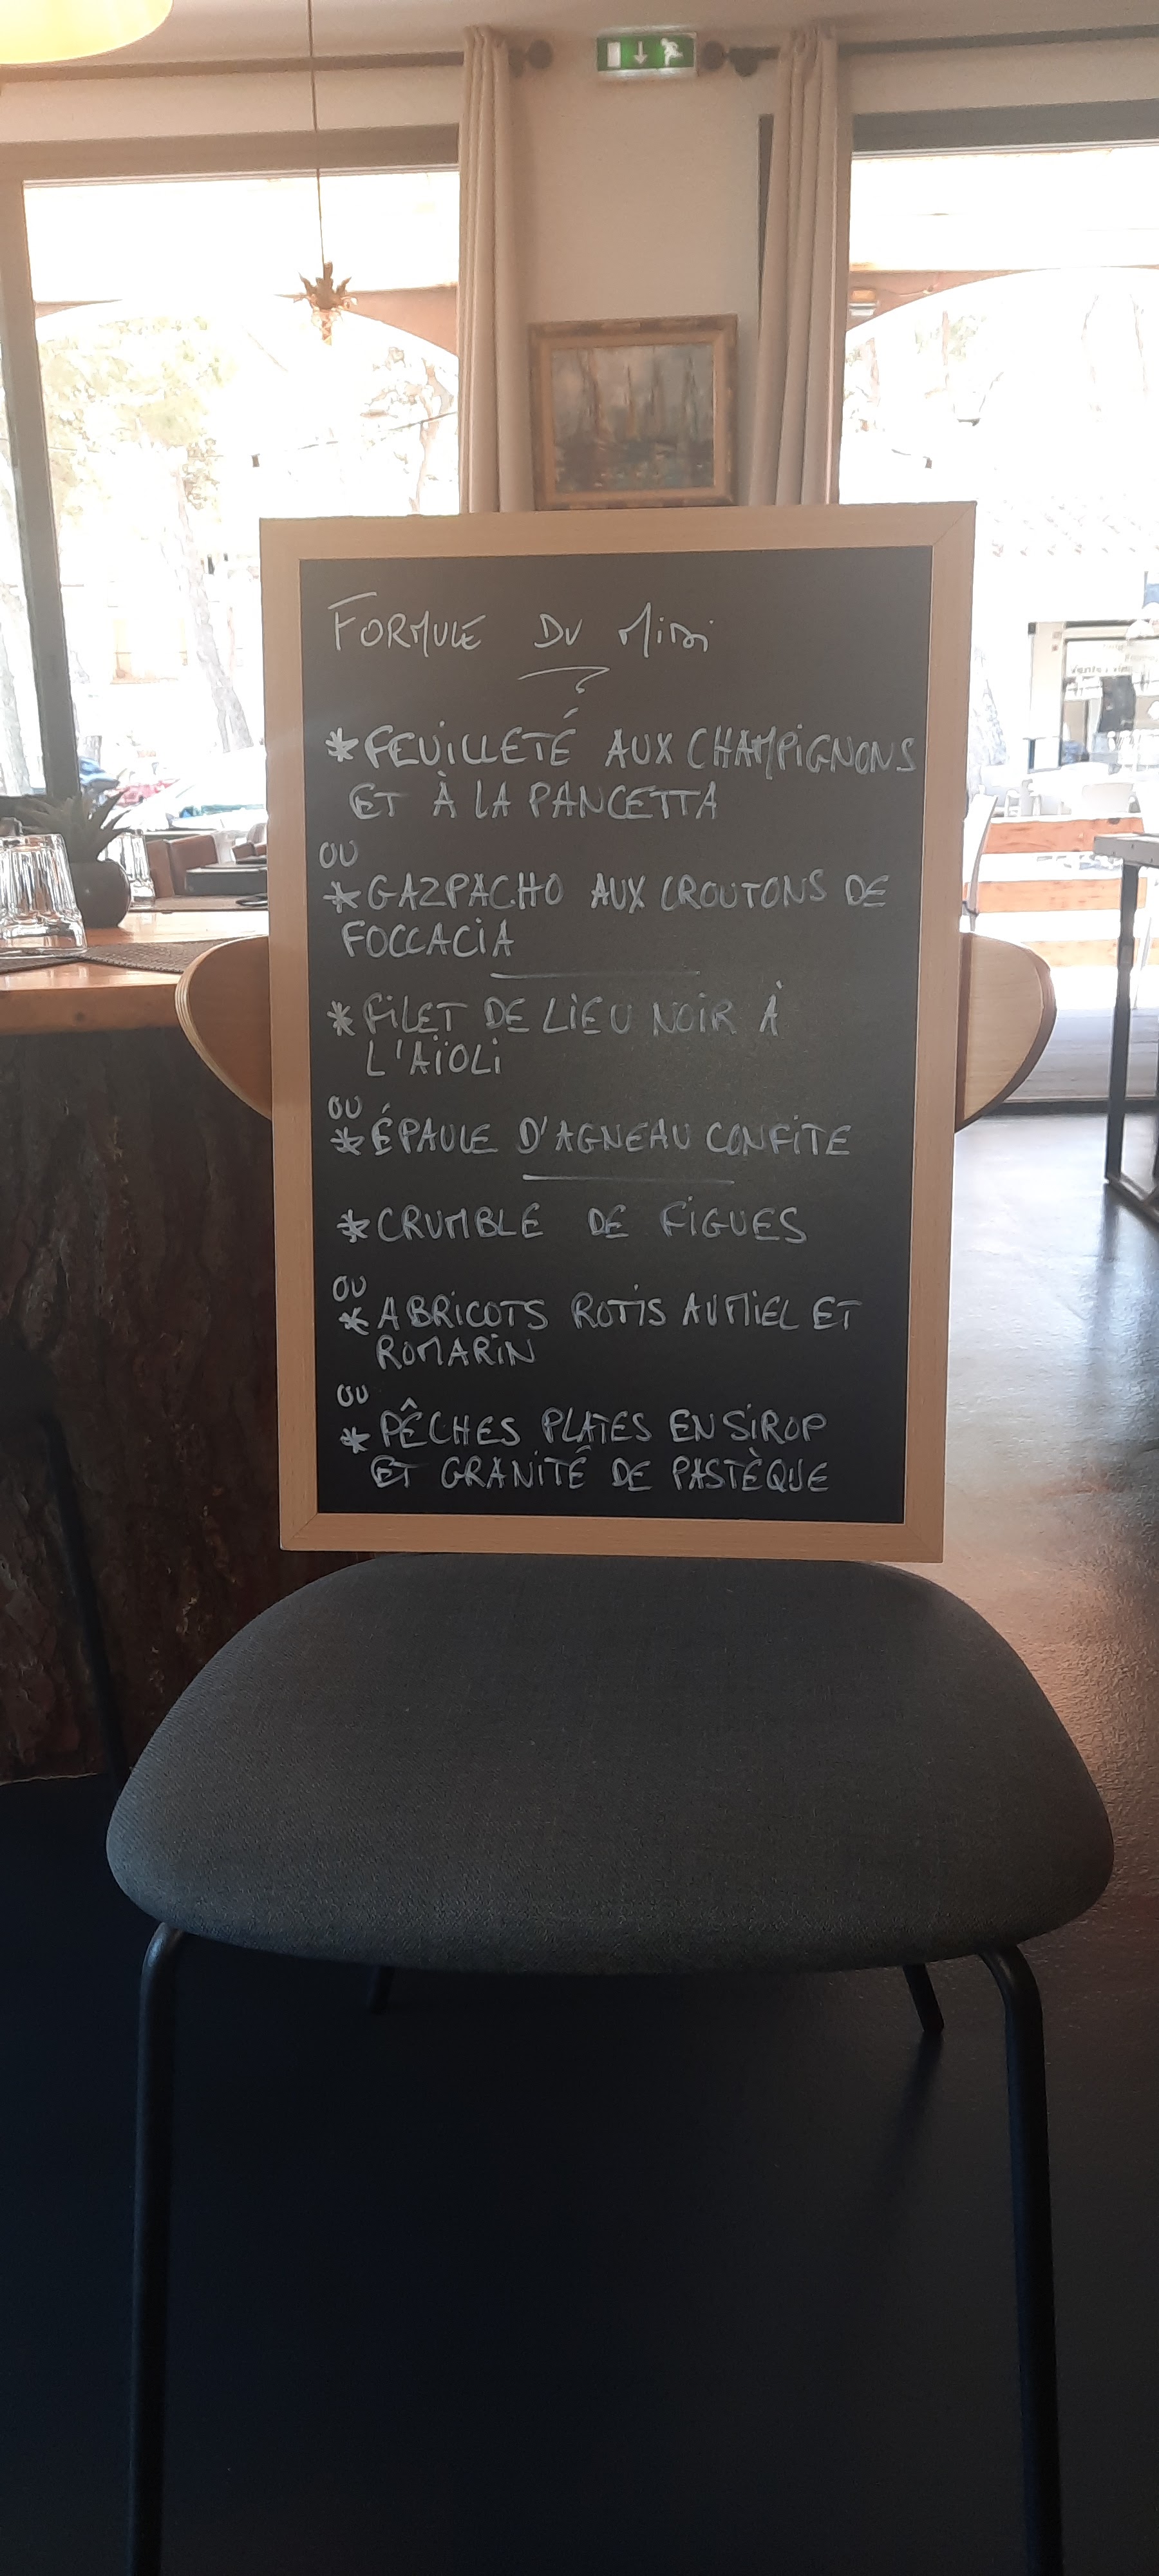 FORMULE DU MiDi
*FEUiLLETÉ AUX CHAMPiGNONS
ET À LA PANCETTA
OU
*GAZPACHO AUX CROUTONS DE
FOCCACiA
*FiLET DE LiEU NOiR À
L'AÏOLi
OU
*ÉPAULE D'AGNEAU CONFiTE
*CRUMBLE DE FiGUES
OU
*ABRiCOTS ROTiS AU MiEL ET
ROMARiN
OU
*PÊCHES PLATES EN SiROP
ET GRANiTÉ DE PASTÈQUE